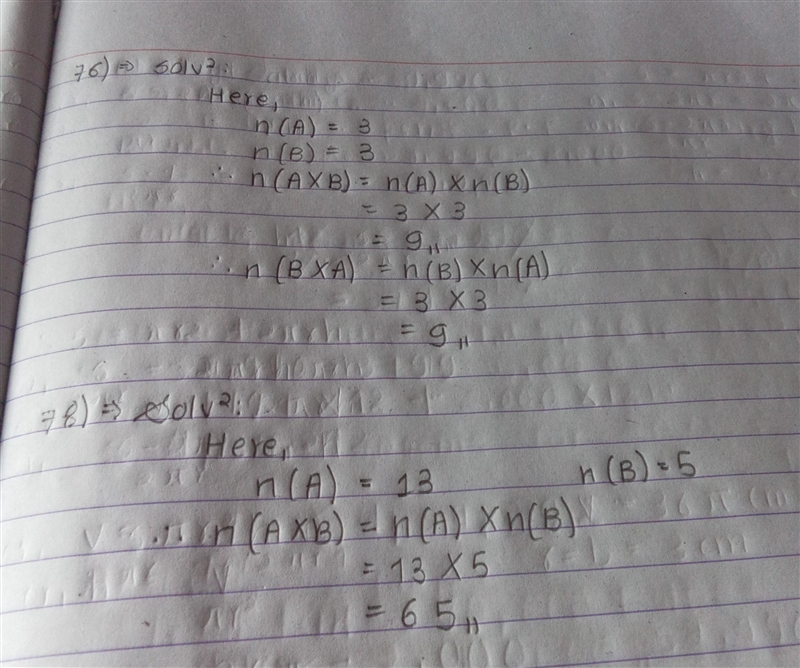 76) ⇒ Solvⁿ:
Here,
n(A) = 3
n(B) = 3
∴ n(A×B) = n(A) × n(B)
= 3 × 3
= 9,,
∴ n(B×A) = n(B) × n(A)
= 3 × 3
= 9,,
78) ⇒ Solvⁿ:
Here,
n(A) = 13 n(B) = 5
∴ n(A×B) = n(A) × n(B)
= 13 × 5
= 65,,